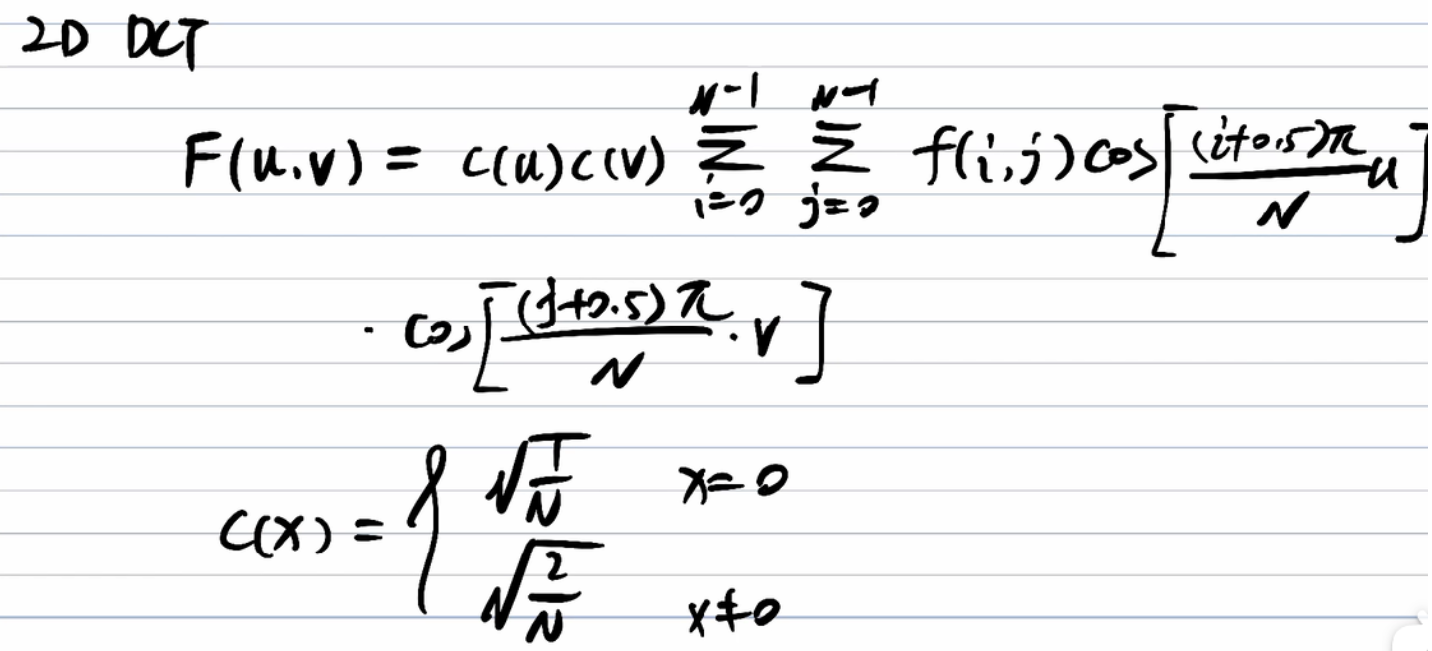 2D DCT
F(u.v) = c(u)c(v) \sum_{i=0}^{N-1} \sum_{j=0}^{N-1} f(i,j) cos[\frac{(i+0.5)π}{N} u]
· cos[\frac{(j+0.5)π}{N} · v]
C(x) = { \sqrt{\frac{1}{N}} x=0
\sqrt{\frac{2}{N}} x≠0